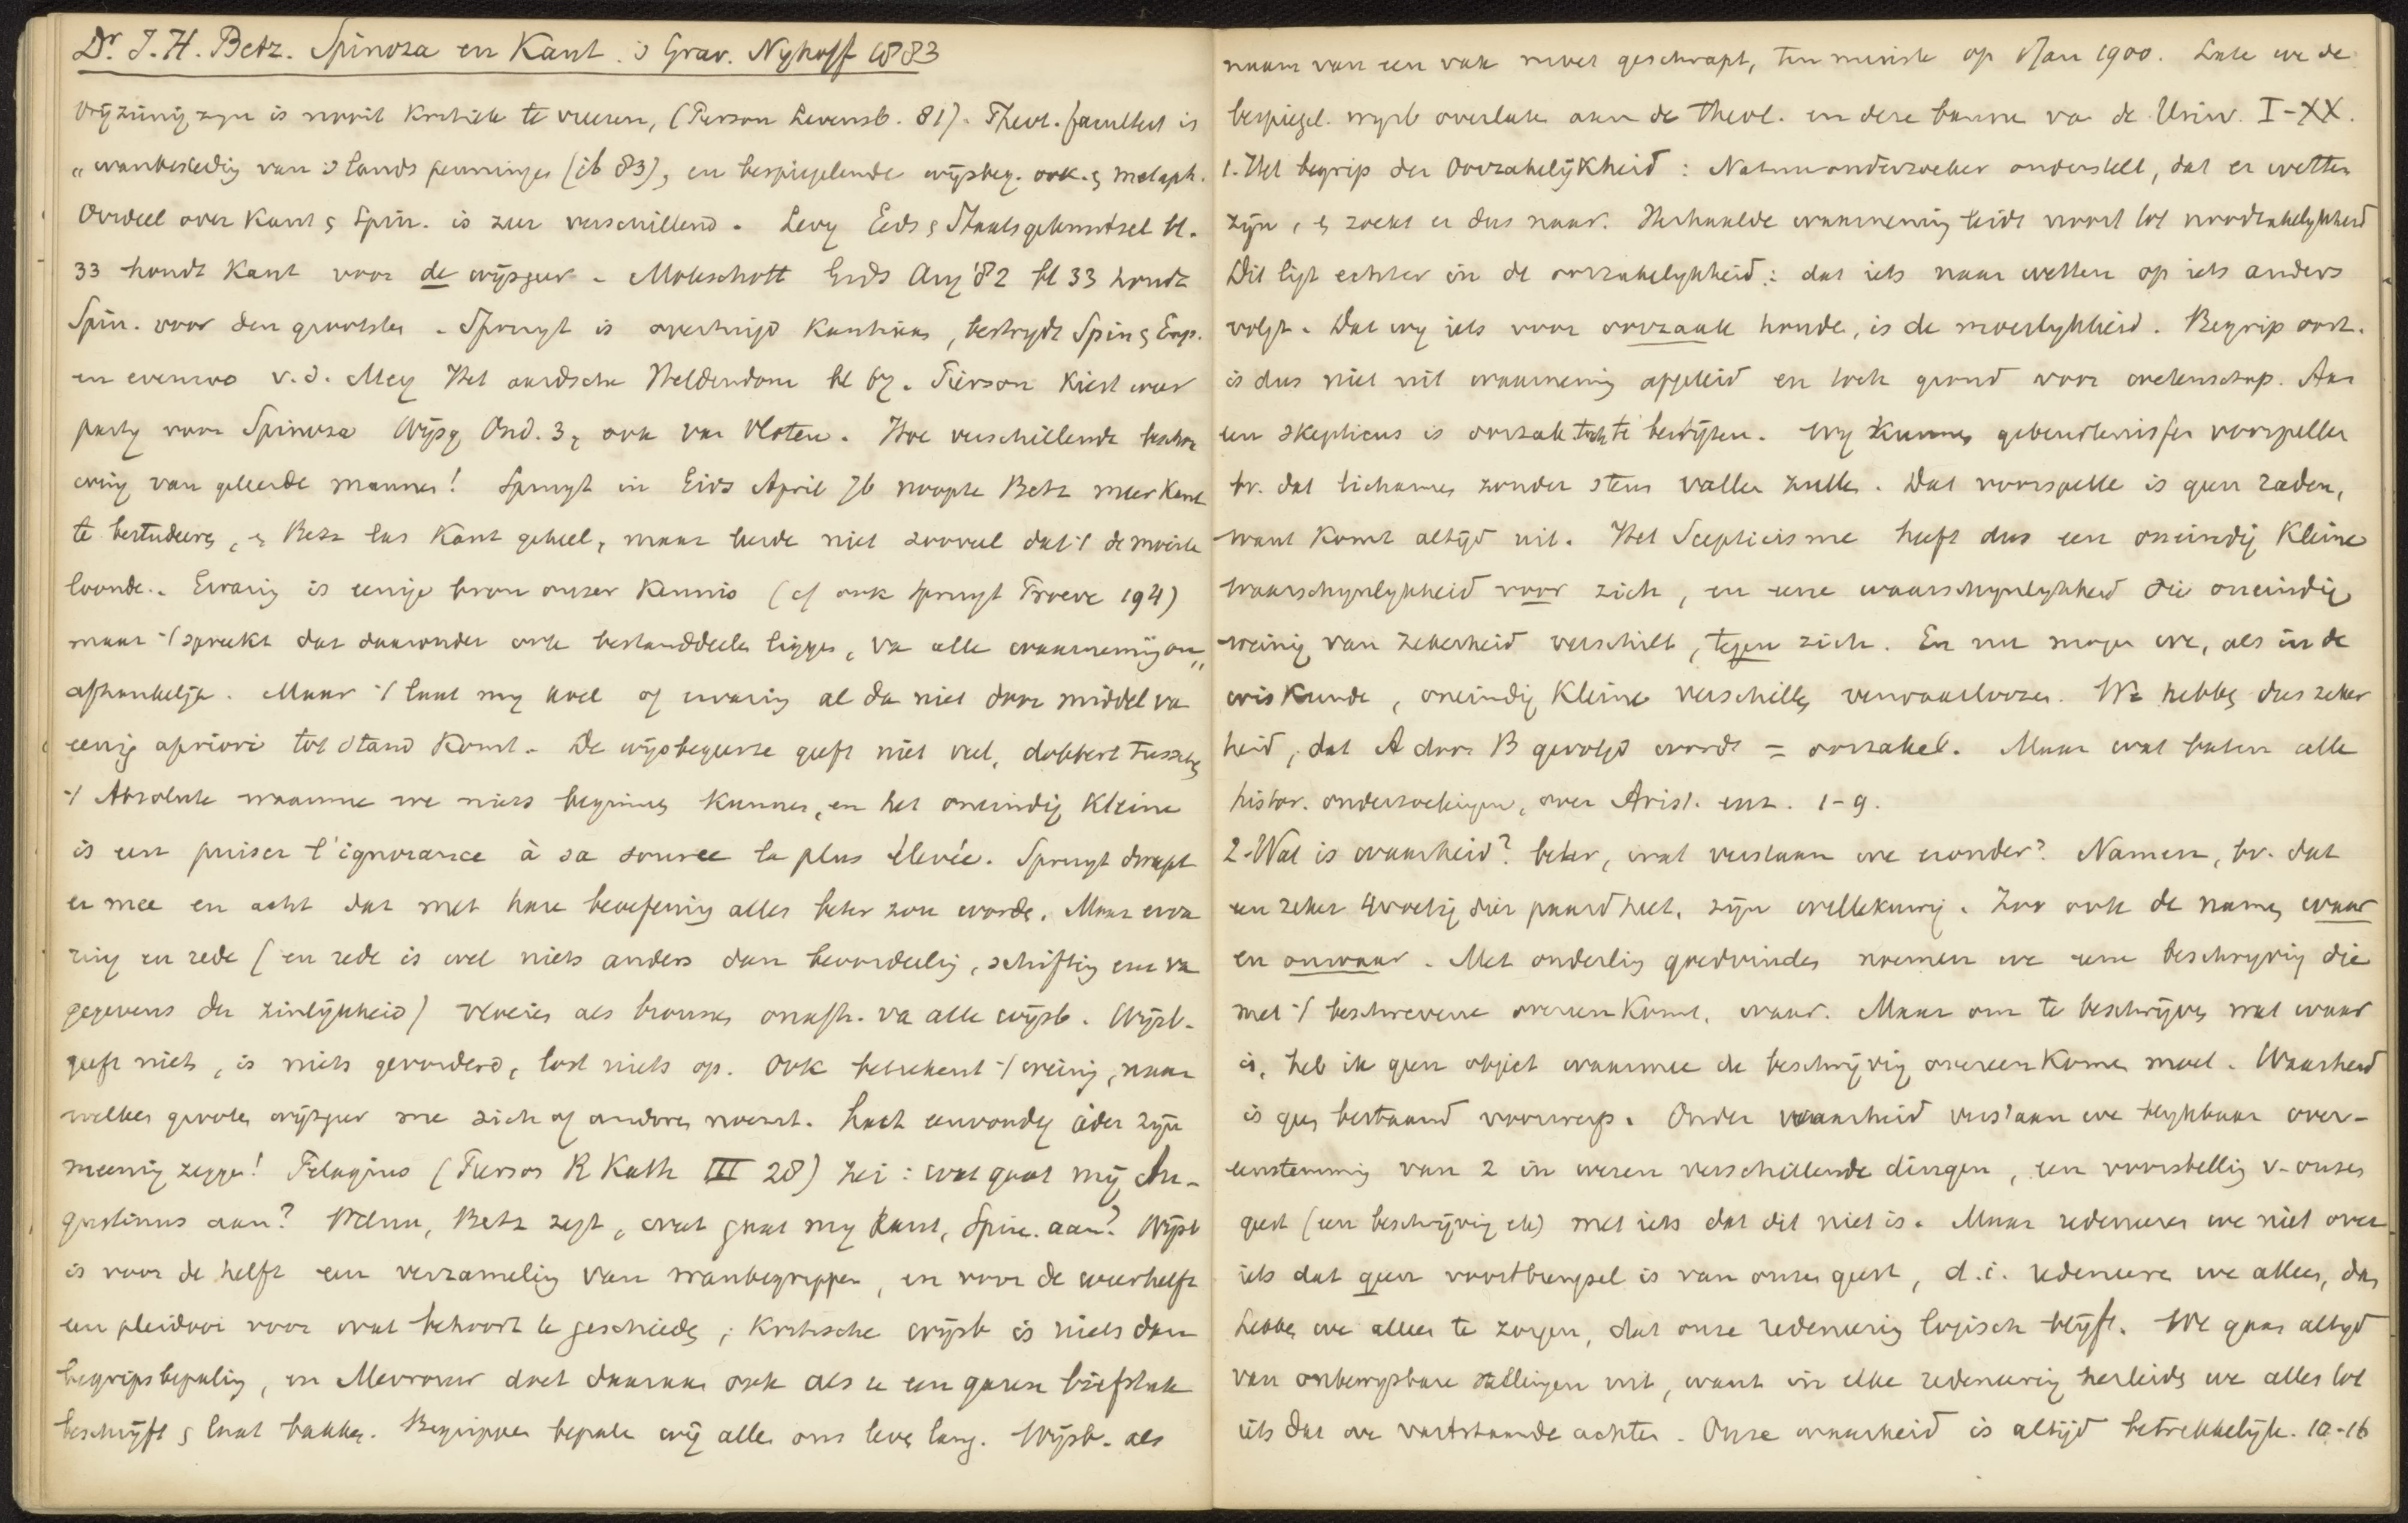 Dr J. H. Betz. Spinoza en Kant. 's Grav. Nyhoff 1883
Vrijzinnig zyn is nooit Kritiek te vreezen, (Pierson Levensb. 81). Theol. faculteit is
„wanbesteding van 's lands penningen (ib 83), en bespiegelende wijsbeg. ook. & metaph.
Oordeel over Kant & Spin. is zeer verschillend. Levy Gids & Staatsgebouw bl.
33 houdt Kant voor de wijsgeer - Moleschott Gids Aug '82 bl 33 houdt
Spin. voor den grootsten. Spruyt is overtuigd Kantiaan, bestrydt Spin & Emp.
en evenzoo v. d. Mey Het aardsche Heldendom bl 67. Pierson Kiest weer
party voor Spinoza Wijsg. Ond. 3, ook van Vloten. Hoe verschillende beschou
wing van geleerde mannen! Spruyt in Gids April 76 noopte Betz meer Kant
te bestudeeren, & Betz las Kant geheel, maar leerde niet zooveel dat 't de moeite
loonde. Ervaring is eenige bron onzer Kennis (cf ook Spruyt Proeve 194)
maar 't spreekt dat daaronder ook bestanddeelen liggen, va alle waarneming on„
afhankelyk. Maar 't laat my koel of ervaring al da niet door middel va
eenig apriori tot stand Komt. De wijsbegeerte geeft niet veel, dobbert tusschen
't Absolute waarmee we niets beginnen Kunnen, en het oneindig Kleine
is een puiser l'ignorance à sa source la plus élevée. Spruyt dweept
er mee en acht dat met hare beoefening alles beter zou worden. Maar erva
ring en rede (en rede is wel niets anders dan beoordeeling, schifting enz va
gegevens der zinlijkheid) vloeien als bronnen onafh. va alle wijsb. Wijsb.
geeft niets, is niets gevorderd, lost niets op. Ook beteekent 't weinig, naar
welken grooten wijsgeer me zich of anderen noemt. Laat eenvoudig ieder zijn
meening zeggen! Pelagius (Pierson R Kath III 28) zei: wat gaat mij Au-
gustinus aan? Welnu, Betz zegt, wat gaat my Kant, Spin. aan? Wijsb
is voor de helft een verzameling van wanbegrippen, en voor de wederhelft
een pleidooi voor wat behoort te geschieden; Kritische wijsb is niets dan
begripsbepaling, en Mevrouw doet daaraan ook als ze een garen biefstuk
beschrijft & laat bakken. Begrippen bepalen wij allen ons leven lang. Wijsb. als
naam van een vak moet geschrapt, ten minste op 1 Jan 1900. Laten we de
bespiegel. wysb overlaten aan de theol. en deze bannen va de Univ. I-XX.
1. Het begrip der Oorzakelijkheid: Natuuronderzoeker onderstelt, dat er wetten
zijn, & zoekt er dus naar. Herhaalde waarneming leidt nooit tot noodzakelykheid
Dit ligt echter in de oorzakelykheid: dat iets naar wetten op iets anders
volgt. Dat wy iets voor oorzaak houden, is de moeilykheid. Begrip oorz.
is dus niet uit waarneming afgeleid en toch grond voor wetenschap. Aan
een skepticus is oorzaak toch te bewijzen. Wy Kunnen gebeurtenissen voorspellen
bv. dat lichamen zonder steun vallen zullen. Dat voorspellen is geen raden,
want Komt altijd uit. Het Scepticisme heeft dus een oneindig Kleine
waarschynlykheid voor zich, en eene waarschynlykheid die oneindig
weinig van zekerheid verschilt, tegen zich. En nu mogen we, als in de
wisKunde, oneindig Kleine verschillen verwaarloozen. We hebben dus zeker
heid, dat A door B gevolgd wordt = oorzakel. Maar wat baten alle
histor. onderzoekingen, over Arist. enz. 1-9.
2. Wat is waarheid? beter, wat verstaan we eronder? Namen, bv. dat
een zeker 4voetig dier paard heet, zijn willekeurig. Zoo ook de namen waar
en onwaar. Met onderling goedvinden noemen we eene beschryving die
met 't beschrevene overeen Komt, waar. Maar om te beschrijven wat waar
is, heb ik geen object waarmee de beschrijving overeen Komen moet. Waarheid
is geen bestaand voorwerp. Onder waarheid verstaan we blykbaar over-
eenstemming van 2 in wezen verschillende dingen, een voorstelling v. onzen
geest (een beschrijving etc) met iets dat dit niet is. Maar redeneeren we niet over
iets dat geen voortbrengsel is van onzen geest, d. i. redeneeren we alleen, dan
hebben we alleen te zorgen, dat onze redeneering logisch blijft. We gaan altyd
van onbewysbare stellingen uit, want in elke redeneering herleiden we alles tot
iets dat we vaststaande achten. Onze waarheid is altijd betrekkelijk. 10-16